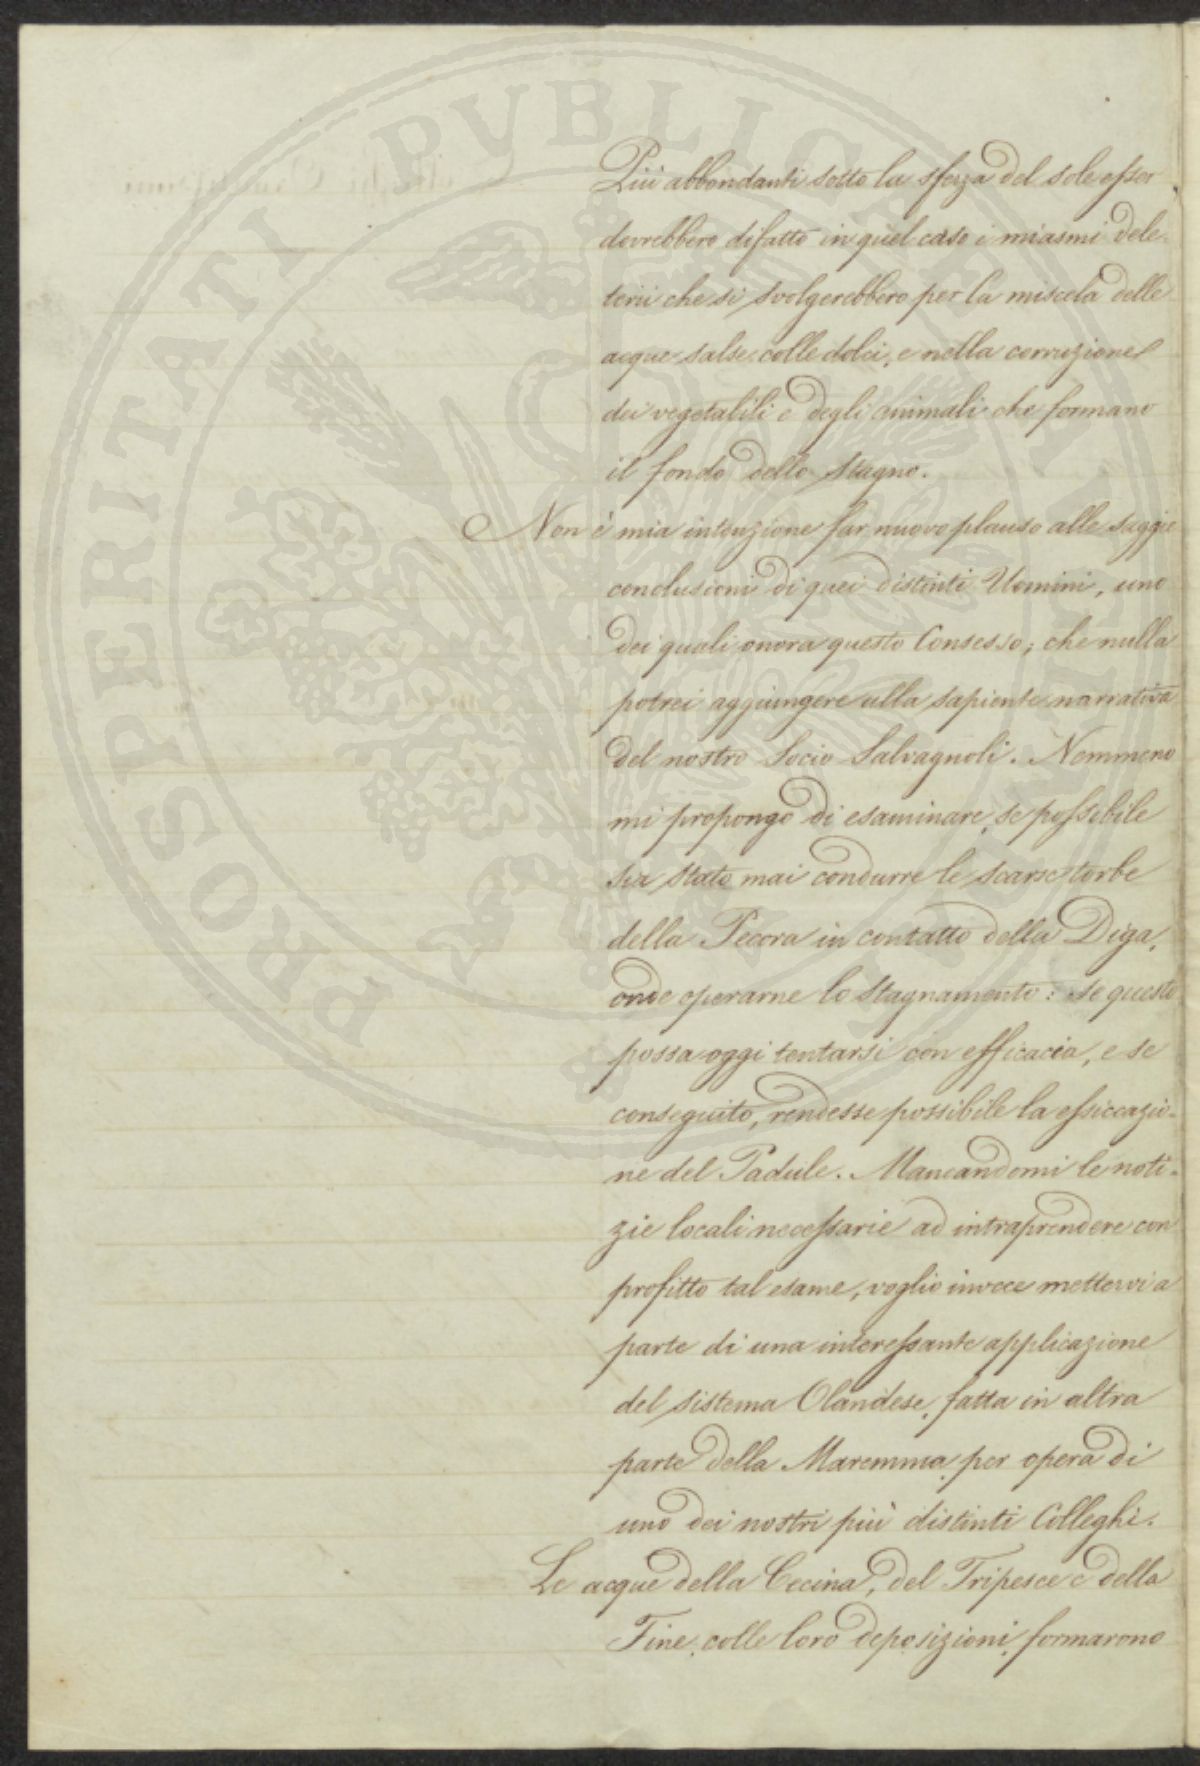 Più abbondanti sotto la sferza del sole esser
dovrebbero difatto in quel caso i miasmi dele-
terii che si svolgerebbero per la miscela delle
acque salse colle dolci, e nella corruzione
dei vegetabili e degli animali che formano
il fondo dello Stagno.
Non è mia intenzione far nuovo plauso alle saggie
conclusioni di quei distinti Uomini, uno
dei quali onora questo Consesso; che nulla
potrei aggiungere alla sapiente narrativa
del nostro Socio Salvagnoli. Nemmeno
mi propongo di esaminare, se possibile
sia stato mai condurre le scarse torbe
della Pecora in contatto della Diga,
onde operarne lo stagnamento: se questo
possa oggi tentarsi con efficacia, e se
conseguito, rendesse possibile la essiccazio-
ne del Padule. Mancandomi le noti-
zie locali necessarie ad intraprendere con
profitto tal esame, voglio invece mettervi a
parte di una interessante applicazione
del sistema Olandese, fatta in altra
parte della Maremma, per opera di
uno dei nostri più distinti Colleghi.
Le acque della Cecina, del Tripesce e della
Fine, colle loro deposizioni, formarono
PROSPERITATI PUBLICAE